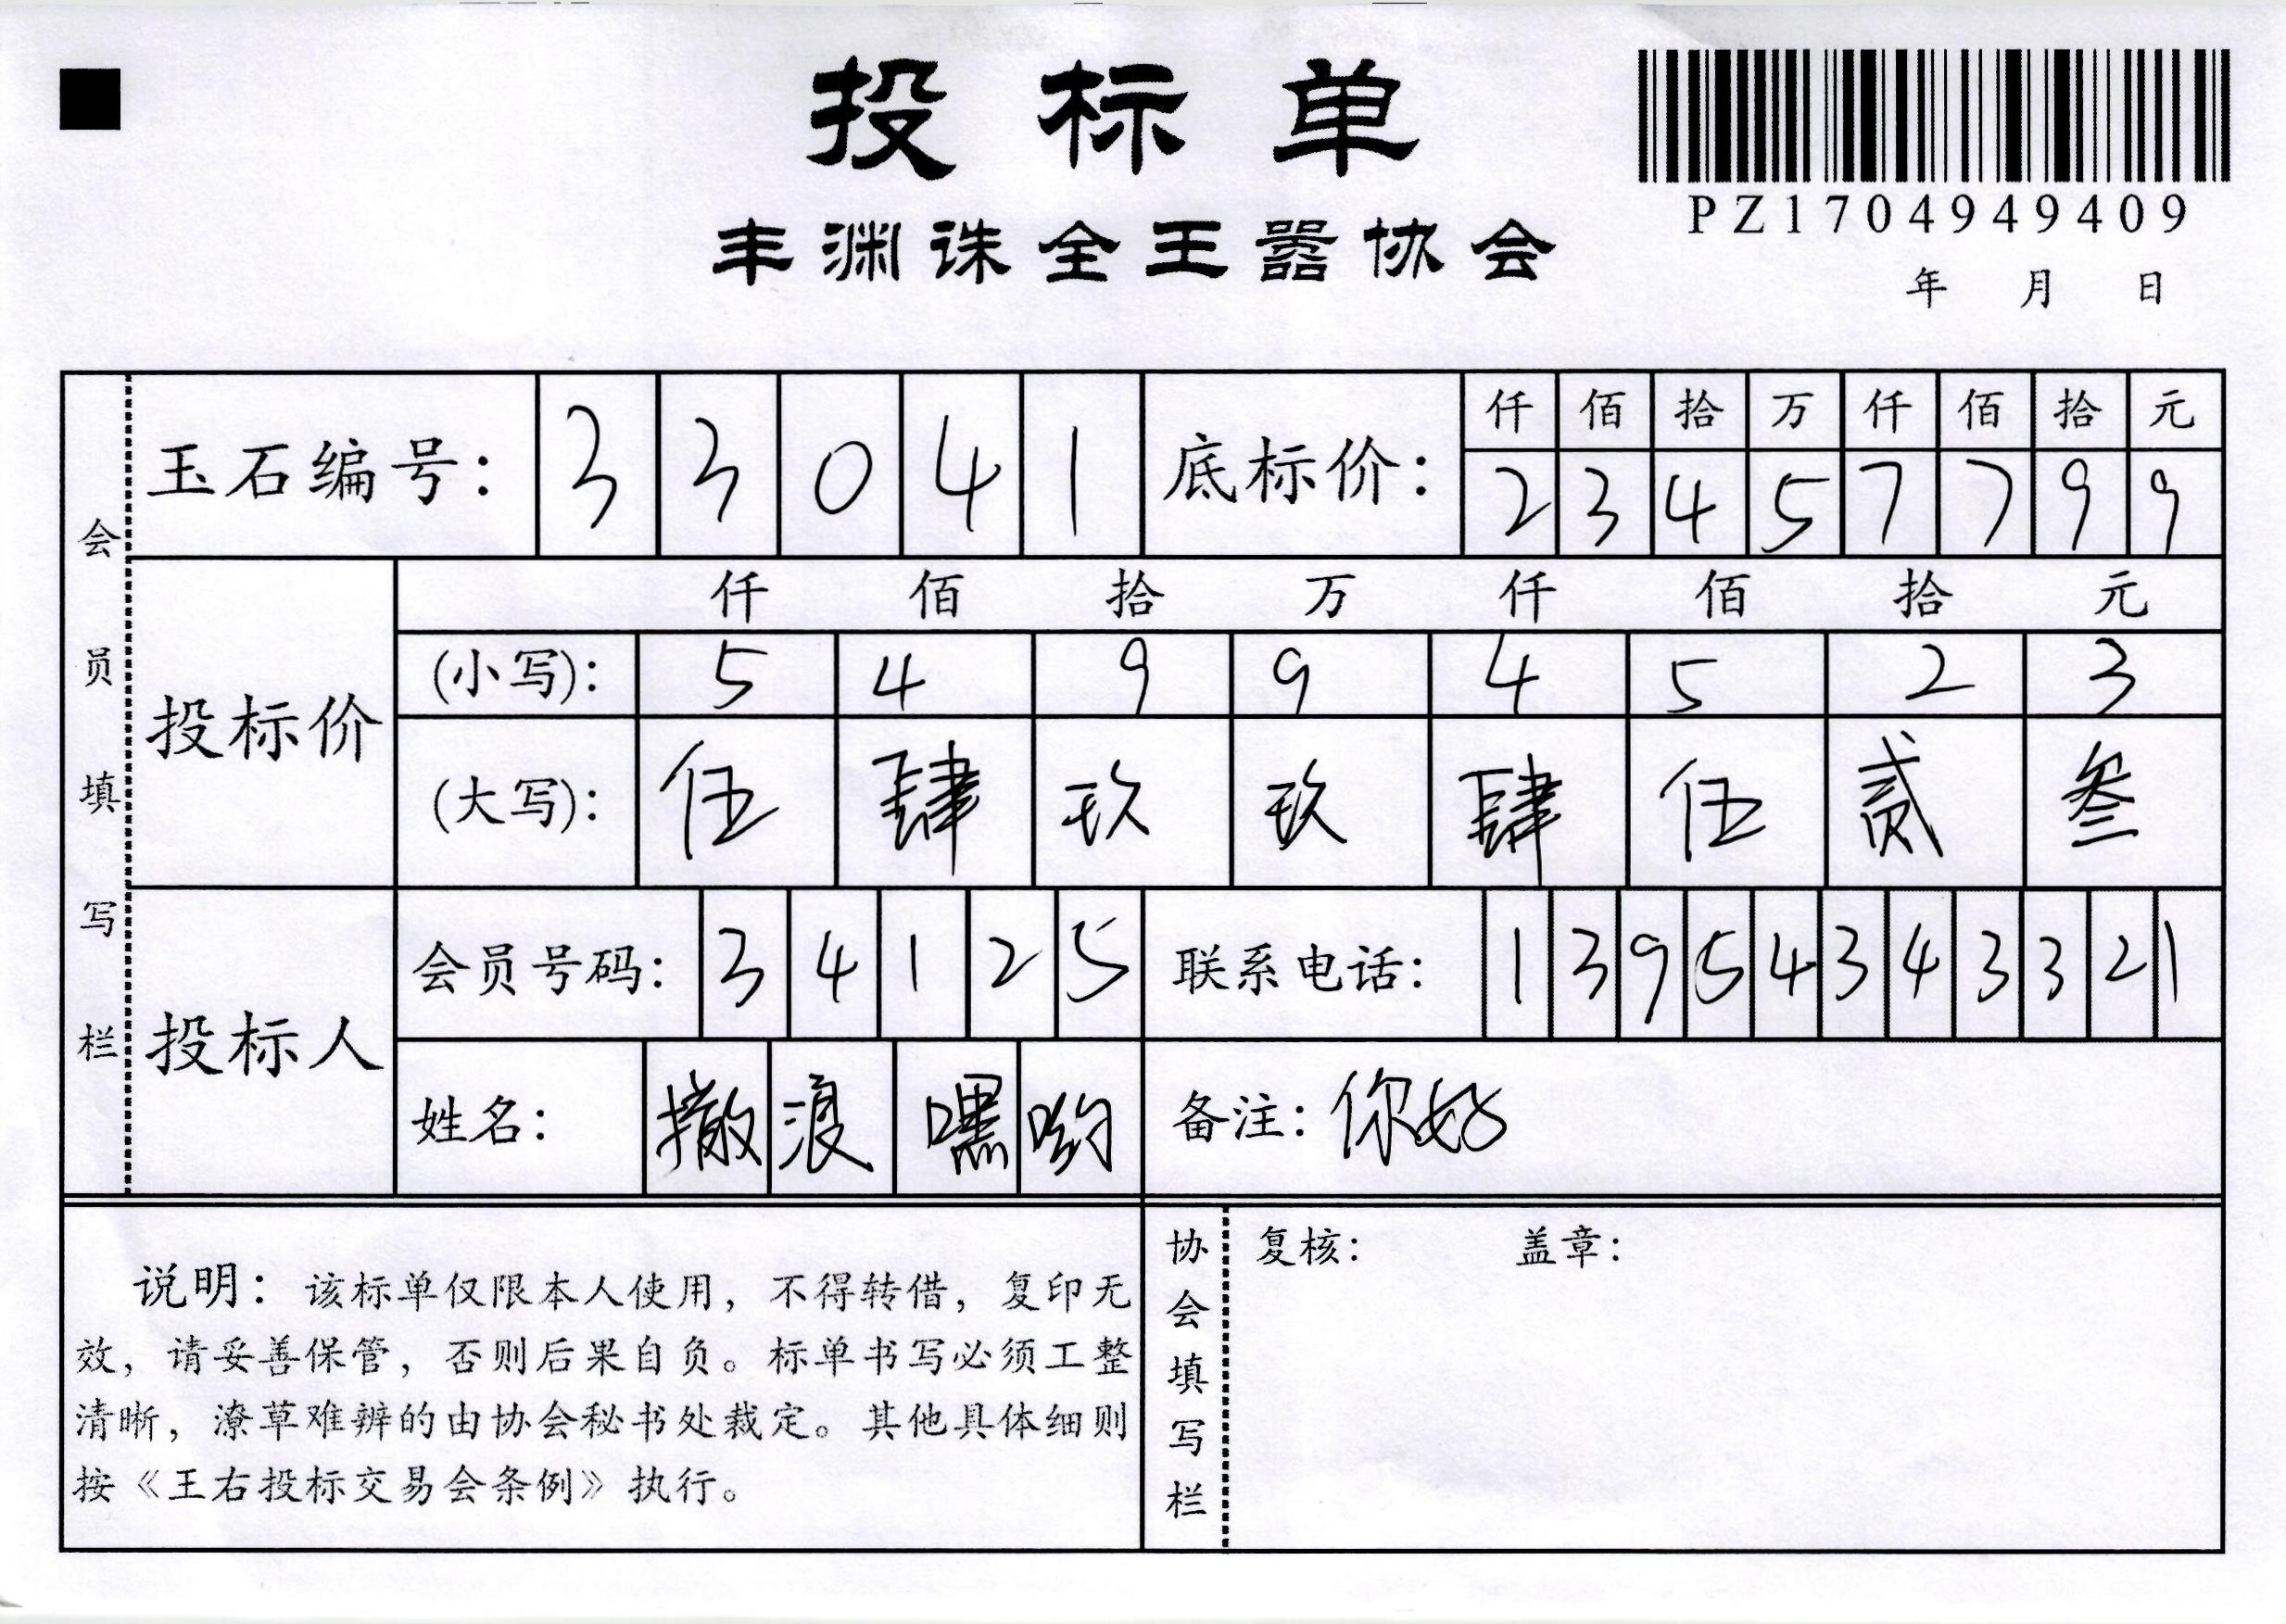 投标单
PZ1704949409
丰渊诛全王嚣协会
年 月 日
会员填写栏
玉石编号: 3 3 0 4 1
底标价:
仟 佰 拾 万 仟 佰 拾 元
2 3 4 5 7 7 9 9
投标价
仟 佰 拾 万 仟 佰 拾 元
(小写): 5 4 9 9 4 5 2 3
(大写): 伍 肆 玖 玖 肆 伍 贰 叁
投标人
会员号码: 3 4 1 2 5
联系电话: 1 3 9 5 4 3 4 3 3 2 1
姓名: 撒 浪 嘿 哟
备注: 你好
说明: 该标单仅限本人使用, 不得转借, 复印无
效, 请妥善保管, 否则后果自负。标单书写必须工整
清晰, 潦草难辨的由协会秘书处裁定。其他具体细则
按《王右投标交易会条例》执行。
协会填写栏
复核: 盖章: